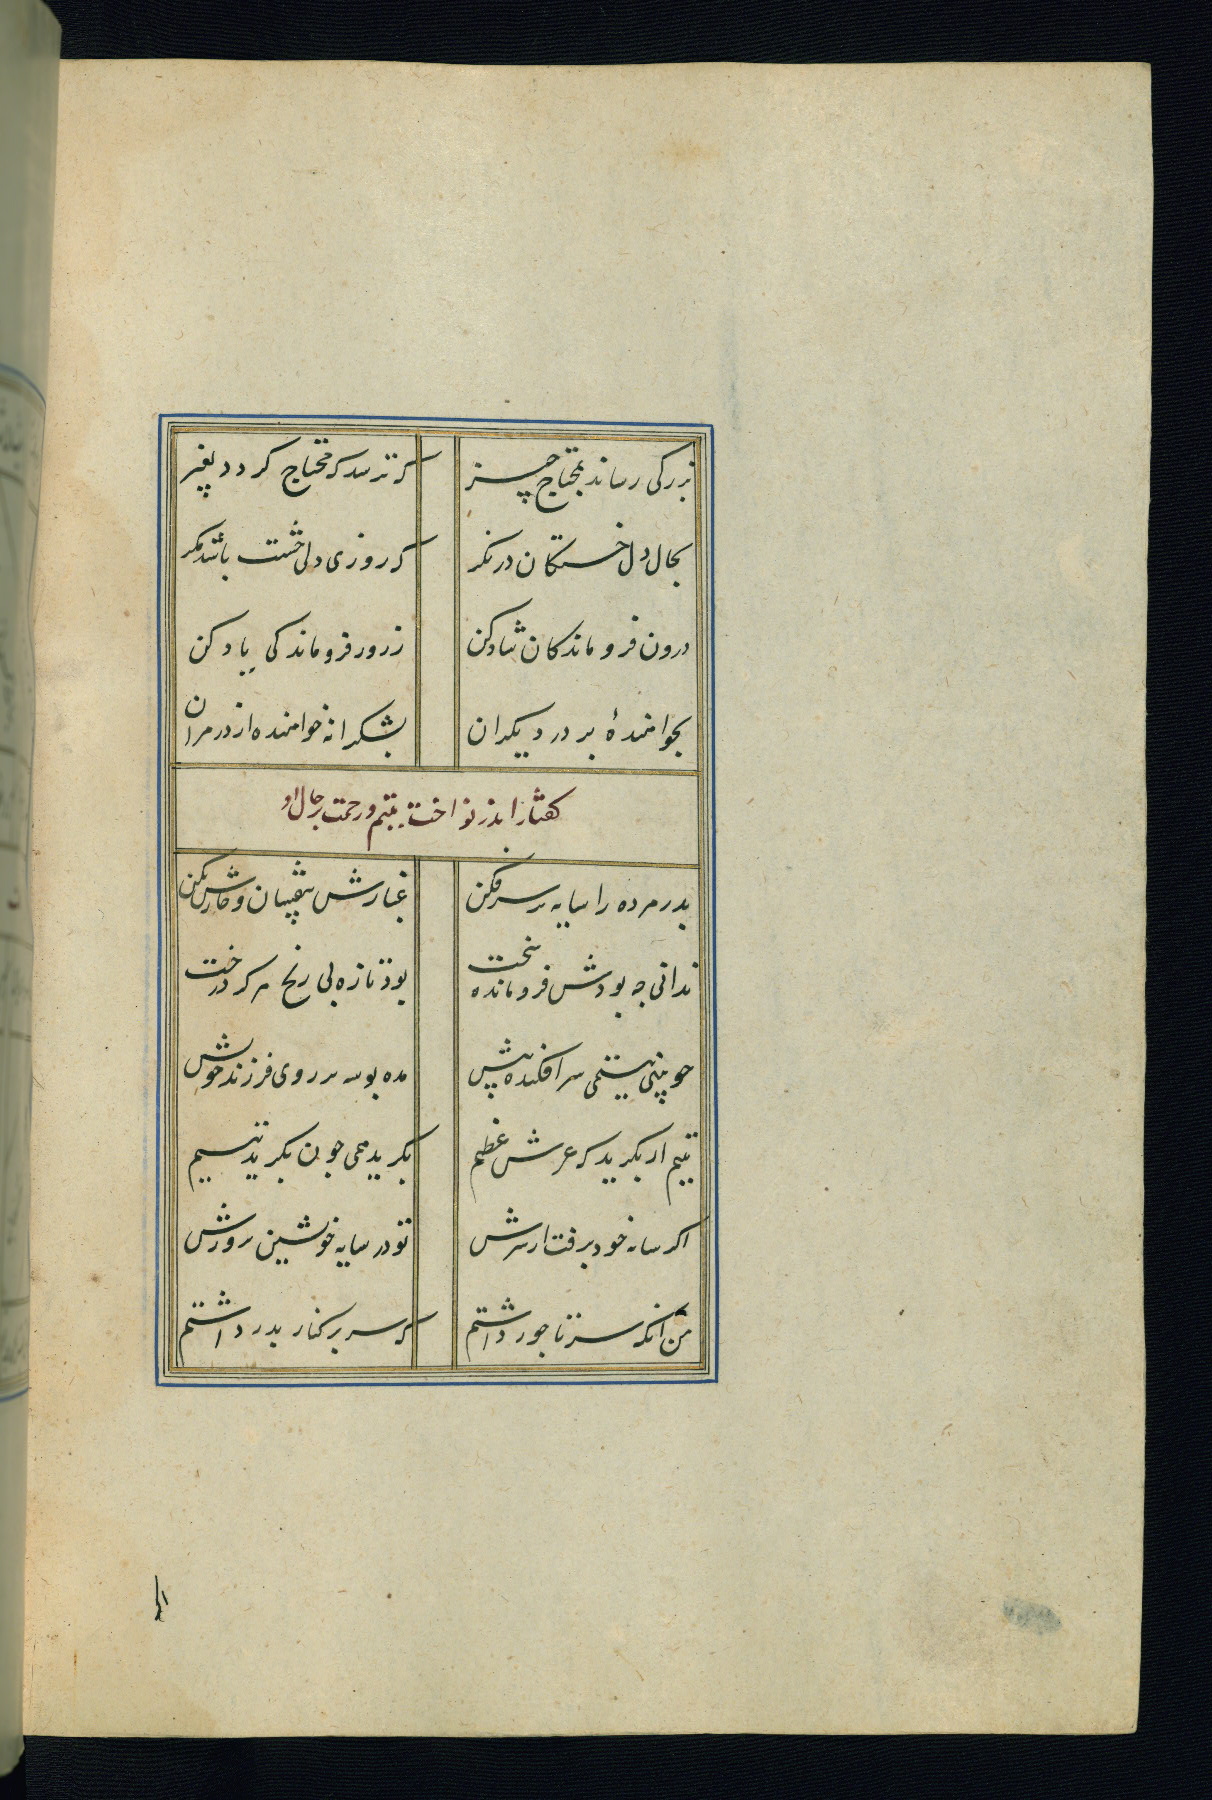 بزرکی رساند بمحتاج چیز که ترسد که محتاج کردد بغیر
بحال دل خستکان درنکر که روزی دلی خسته باشد مکر
درون فروماندکان شاد کن ز روز فروماندکی یاد کن
نخواهندهٔ بر در دیکران بشکرانه خواهنده از در مران
کفتار اندر نواخت یتیم و رحمت بر حال او
پدر مرده را سایه بر سر فکن غبارش بیفشان و خارش بکن
ندانی چه بودش فرومانده سخت بود تازه بی بیخ هرکز درخت
چو بینی یتیمی سر افکنده پیش مده بوسه بر روی فرزند خویش
یتیم ار بکرید که عرش عظیم بکرید همی چون بکرید یتیم
اکر سایه خود برفت از سرش تو در سایه خویشتن پرورش
من آنکه سر تاجور داشتم که سر بر کنار پدر داشتم